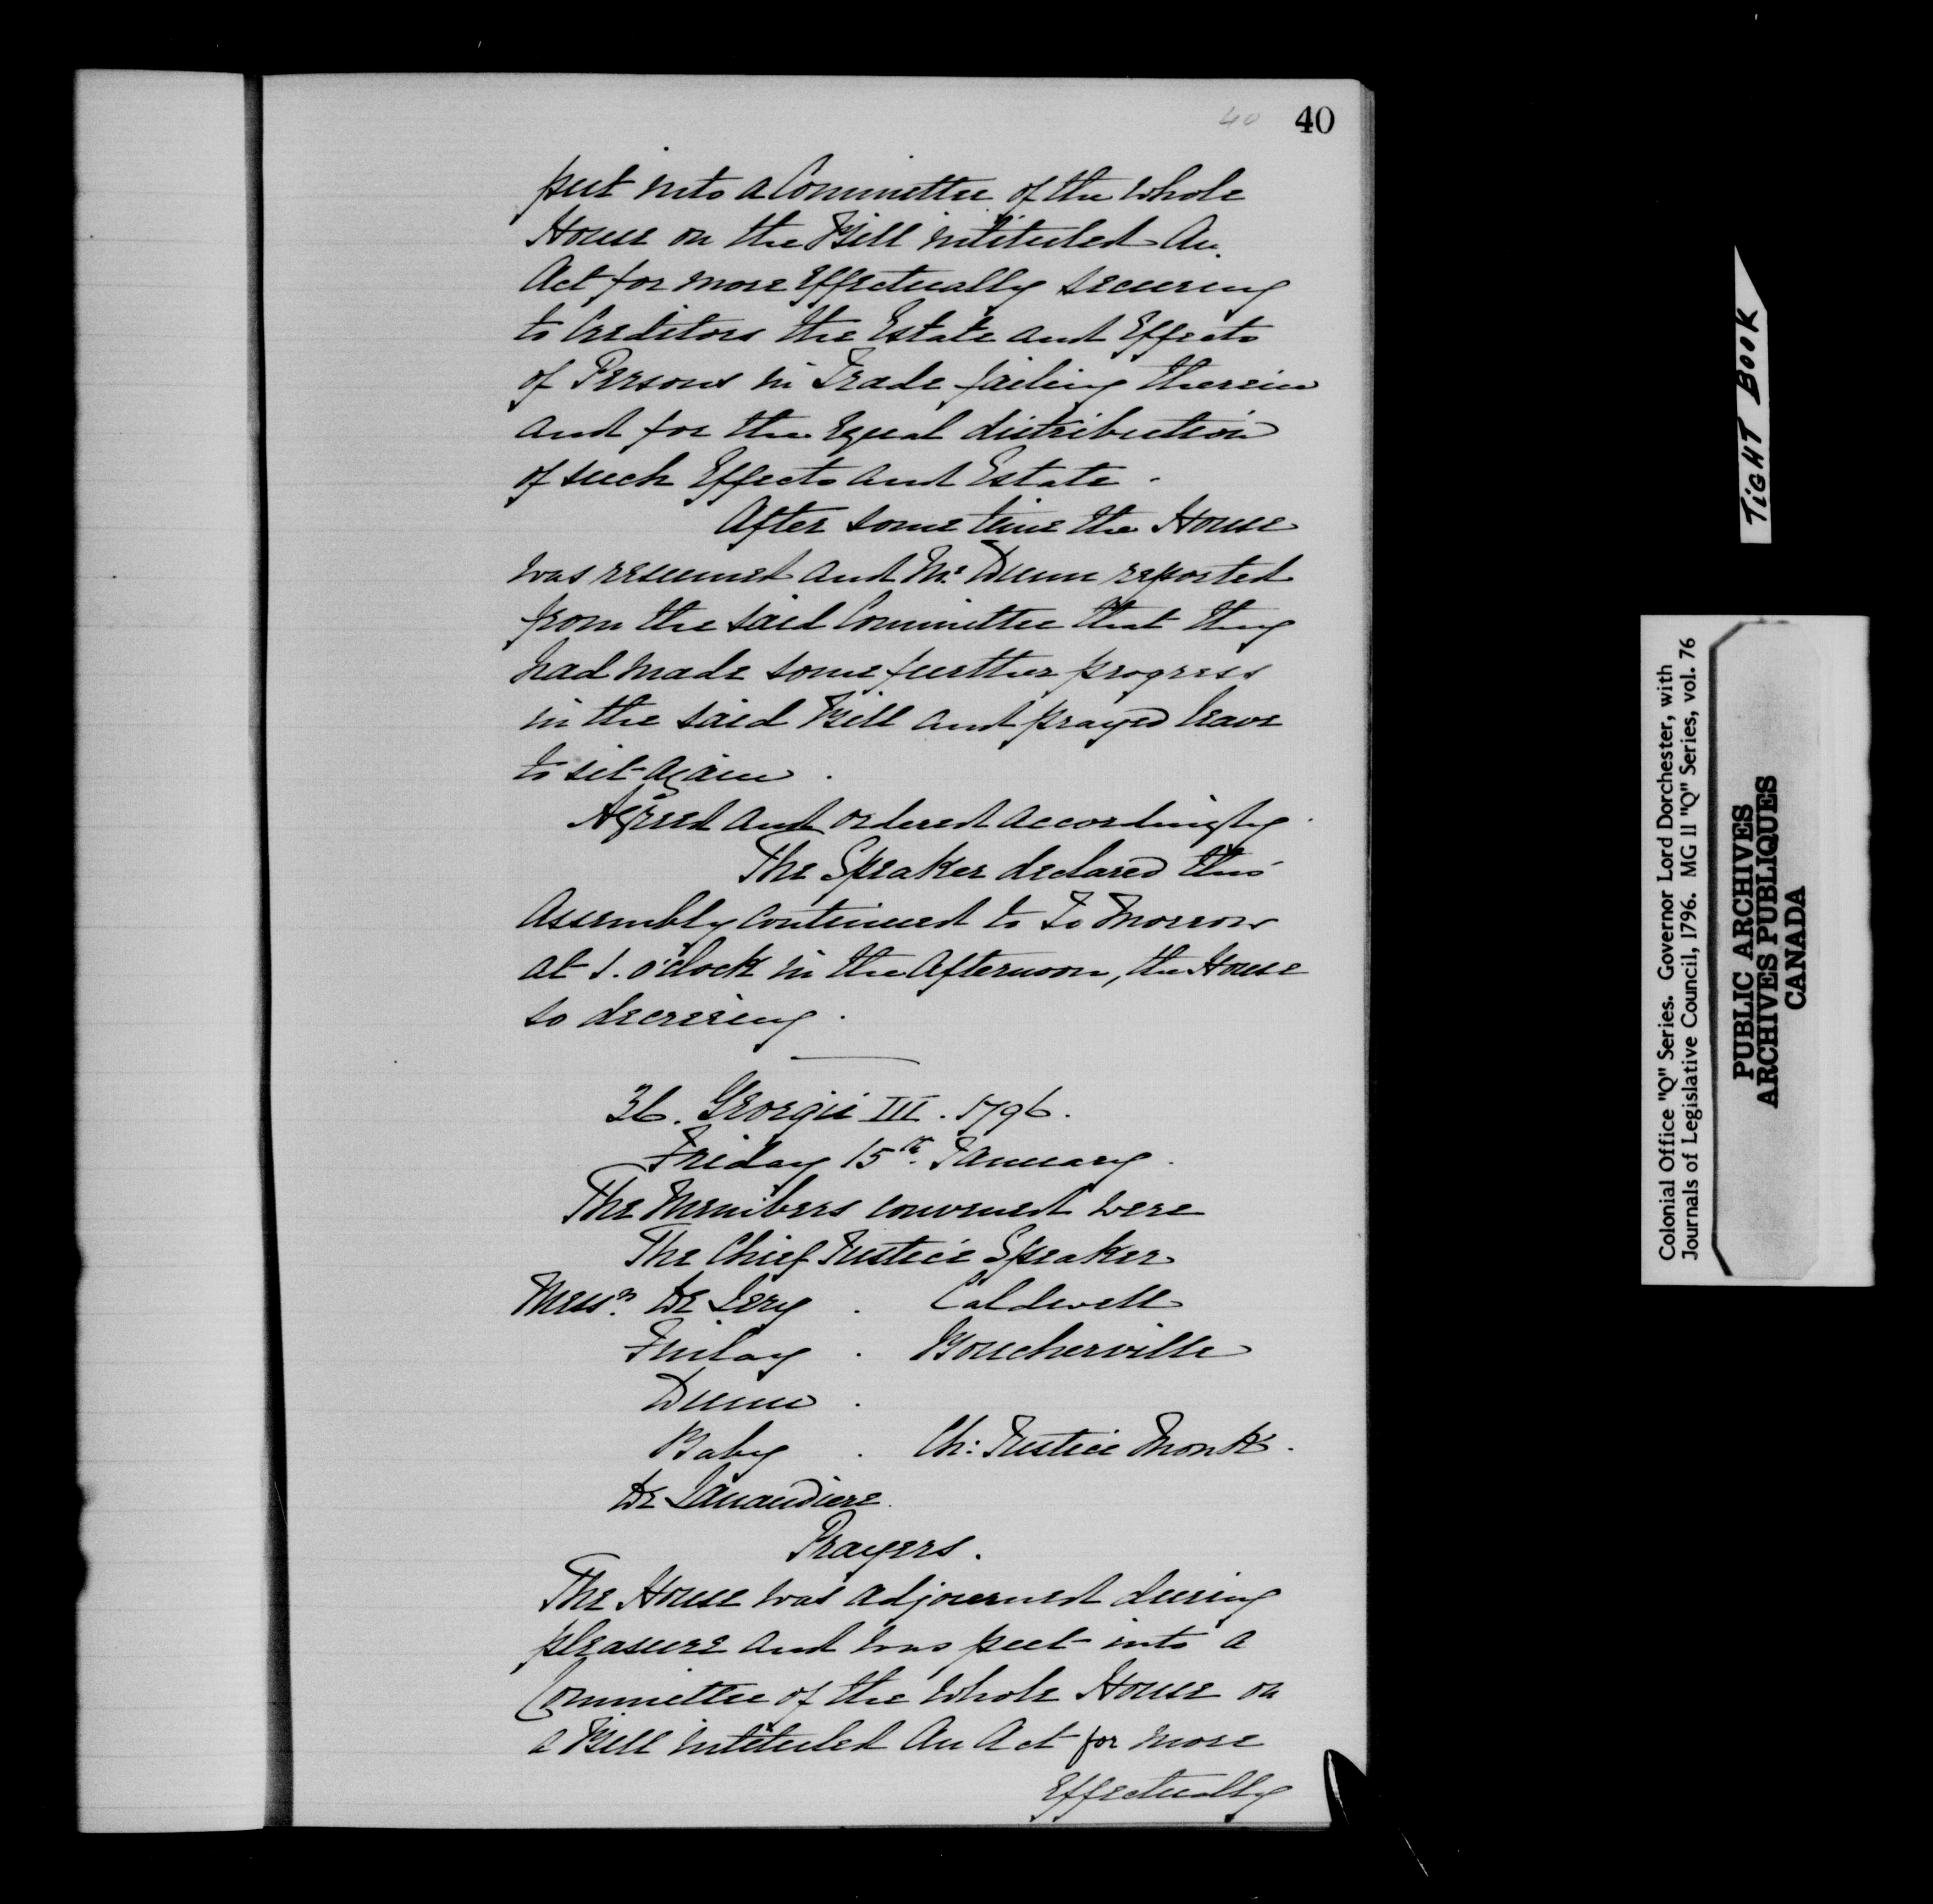 40 40
put into a Committee of the whole
House on the Bill intituled An
Act for more Effectually securing
to Creditors the Estate and Effects
of Persons in Trade failing therein
and for the Equal distribution
of such Effects and Estate.
After some time the House
was resumed and Mr. Dunn reported
from the said Committee that they
had made some further progress
in the said Bill and prayed leave
to sit again.
Agreed and ordered accordingly.
The Speaker declared this
Assembly continued to To Morrow
at 1. o'clock in the Afternoon, the House
so decreeing.
36. Georgii III. 1796.
Friday 15th. January.
The Members convened were
The Chief Justice Speaker
Messrs. De Lery . Caldwell
Finlay . Boucherville
Dunn .
Baby . Ch: Justice Monk.
De Lanaudiere.
Prayers.
The House was adjourned during
pleasure and was put into a
Committee of the whole House on
a Bill intituled An Act for more
Effectually
TIGHT BOOK
Colonial Office "Q" Series. Governor Lord Dorchester, with
Journals of Legislative Council, 1796. MG 11 "Q" Series, vol. 76
PUBLIC ARCHIVES
ARCHIVES PUBLIQUES
CANADA